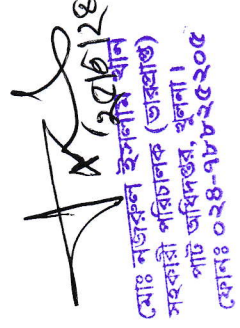 ২৫/৬/২৪
মোঃ নজরুল ইসলাম খান
সহকারী পরিচালক (ভারপ্রাপ্ত)
পাট অধিদপ্তর, খুলনা।
ফোনঃ ০২৪-৭৮৮২৫২০৫